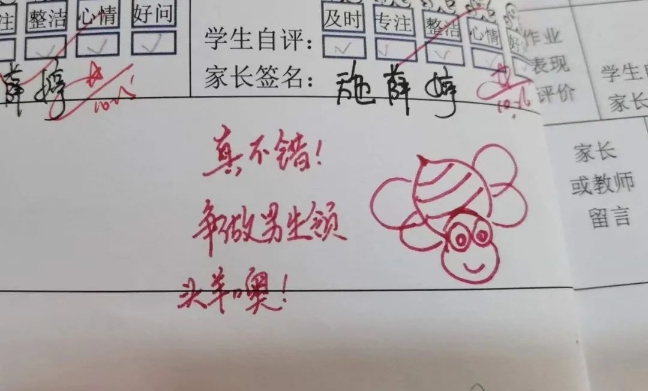 注 整洁 心情 好问
学生自评： 及时 专注 整洁 心情
家长签名： 施薛婷
薛婷
10.
10.
作业
表现
评价
学生自
家长
真不错！
争做男生领
头羊噢！
家长
或教师
留言